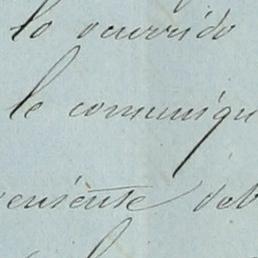 lo ocurrido
le comuniqu
veniente deb